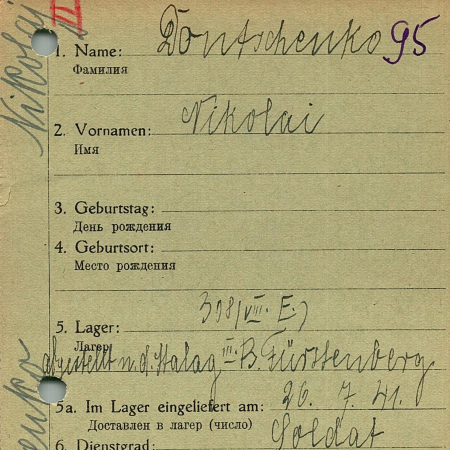 1. Name: Döntschenko 95
Фамилия
2. Vornamen: Nikolai
Имя
3. Geburtstag:
День рождения
4. Geburtsort:
Место рождения
308/VIII. E.)
5. Lager:
Лагерь
abgestellt n. d. Stalag III. B. Fürstenberg
5a. Im Lager eingeliefert am: 26. 7. 41.
Доставлен в лагерь (число)
6. Dienstgrad: Soldat
Nikolai
enko